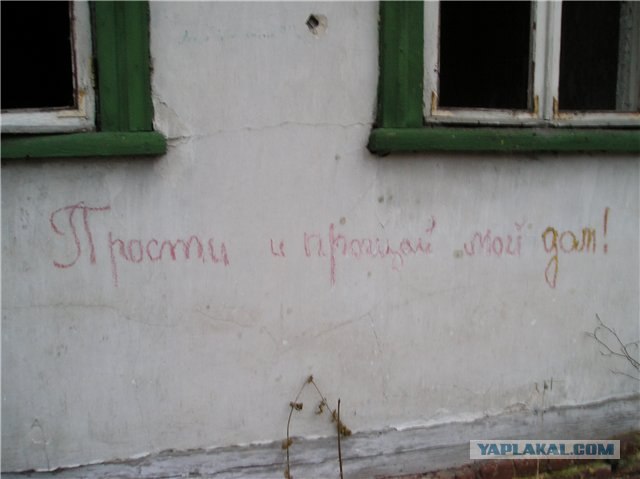 Прости и прощай мой дом!
YAPLAKAL.COM